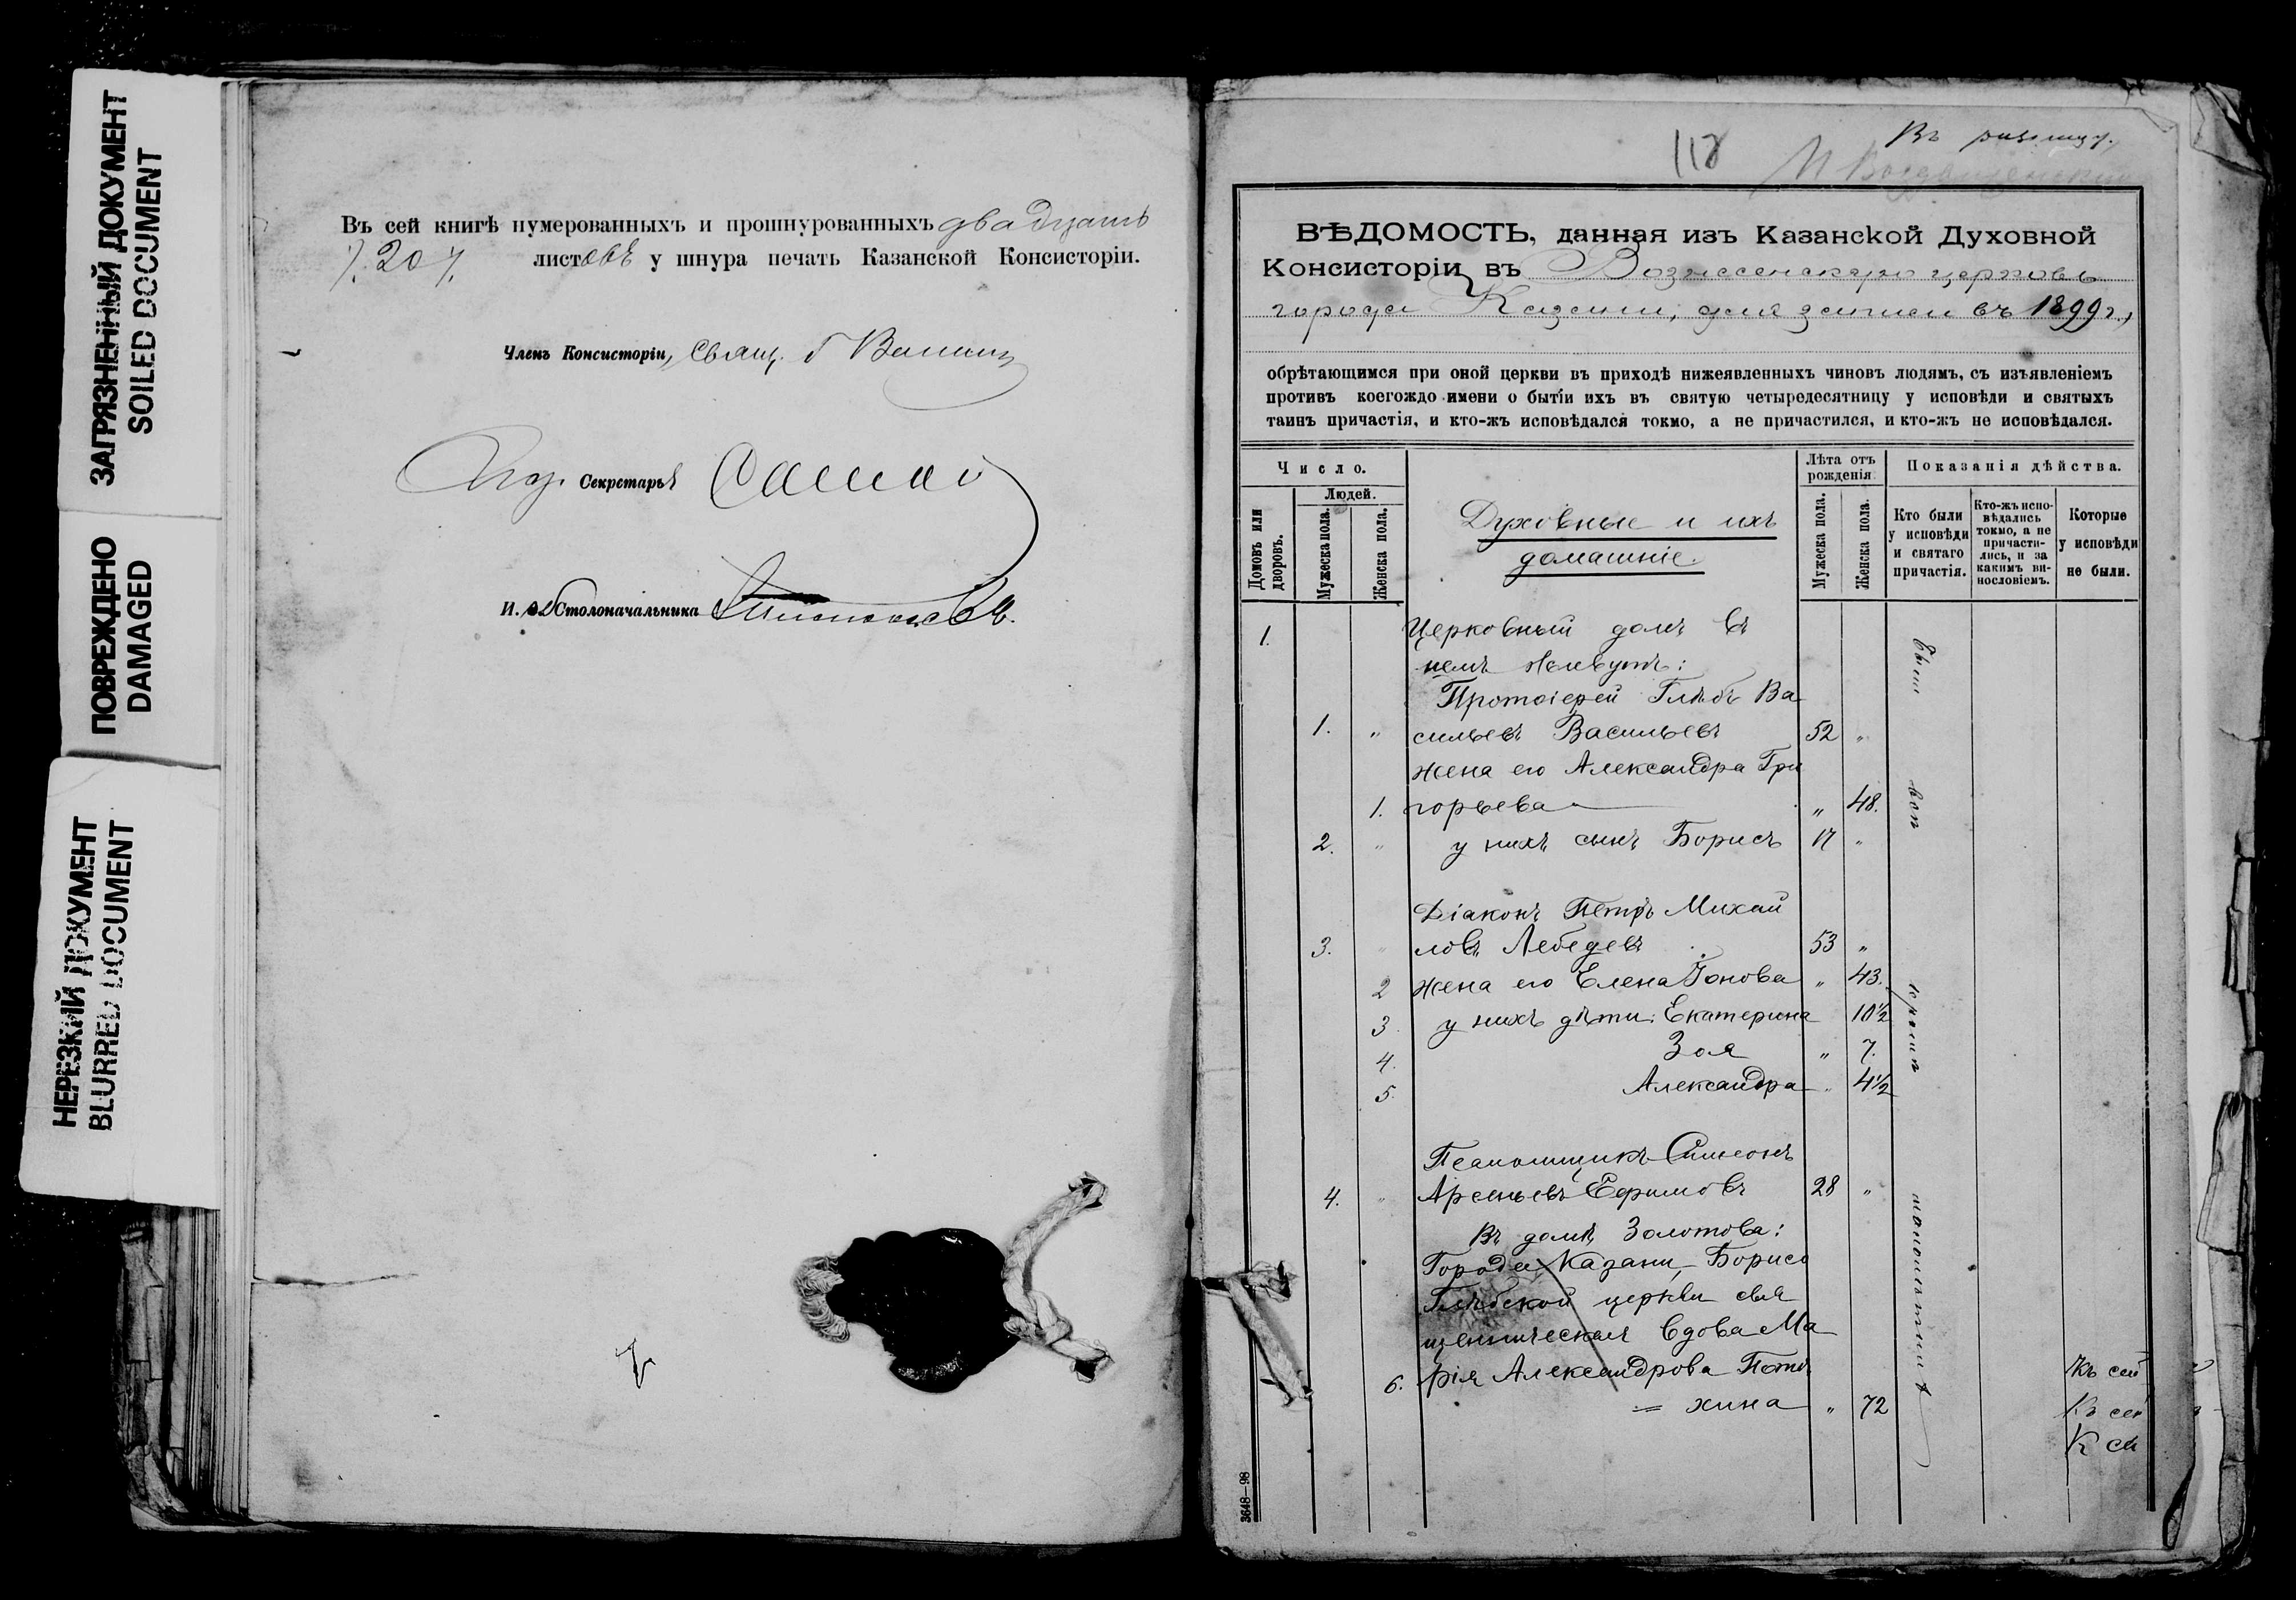 ЗАГРЯЗНЕННЫЙ ДОКУМЕНТ
SOILED DOCUMENT
ПОВРЕЖДЕНО
DAMAGED
НЕРЕЗКИЙ ДОКУМЕНТ
BLURRED DOCUMENT
Въ сей книгѣ нумерованныхъ и прошнурованныхъ двадцать
20 листовъ у шнура печать Казанской Консисторіи.
Членъ Консисторіи, Свящ.
Секретарь
И. д. Столоначальника
118
Въ
ВѢДОМОСТЬ, данная изъ Казанской Духовной
Консисторіи въ Вознесенскую церковь
города Казани, для записи въ 1899 г.,
обрѣтающимся при оной церкви въ приходѣ нижеявленныхъ чиновъ людямъ, съ изъявленіемъ
противъ коегождо имени о бытіи ихъ въ святую четыредесятницу у исповѣди и святыхъ
таинъ причастія, и кто-жъ исповѣдался токмо, а не причастился, и кто-жъ не исповѣдался.
Число.
Домовъ или дворовъ.
Людей.
Мужеска пола.
Женска пола.
Духовные и ихъ
домашніе.
Лѣта отъ
рожденія
Мужеска пола.
Женска пола.
Показанія дѣйства.
Кто были
у исповѣди
и святаго
причастія.
Кто-жъ испо-
вѣдались
токмо, а не
причасти-
лись, и за
какимъ ви-
нословіемъ.
Которые
у исповѣди
не были.
1. Церковный домъ въ
немъ живутъ:
Протоіерей Глѣбъ Ва
1. " сильевъ Васильевъ 52 "
жена его Александра Гри
1. горьева " 48.
2. " у нихъ сынъ Борисъ 17 "
Діаконъ Петръ Михай
3. " ловъ Лебедевъ 53 "
2 жена его Елена Іонова " 43.
3 у нихъ дѣти: Екатерина 10½
4. Зоя " 7.
5. Александра " 4½
Псаломщикъ Симеонъ
4. " Арсеньевъ Ефимовъ 28 "
Въ домѣ Золотова:
Города Казани, Борисо
Глѣбской церкви свя
щенническая вдова Ма
6. рія Александрова Пото
= хина " 72
Къ сей
Къ сей
К се
3648—98